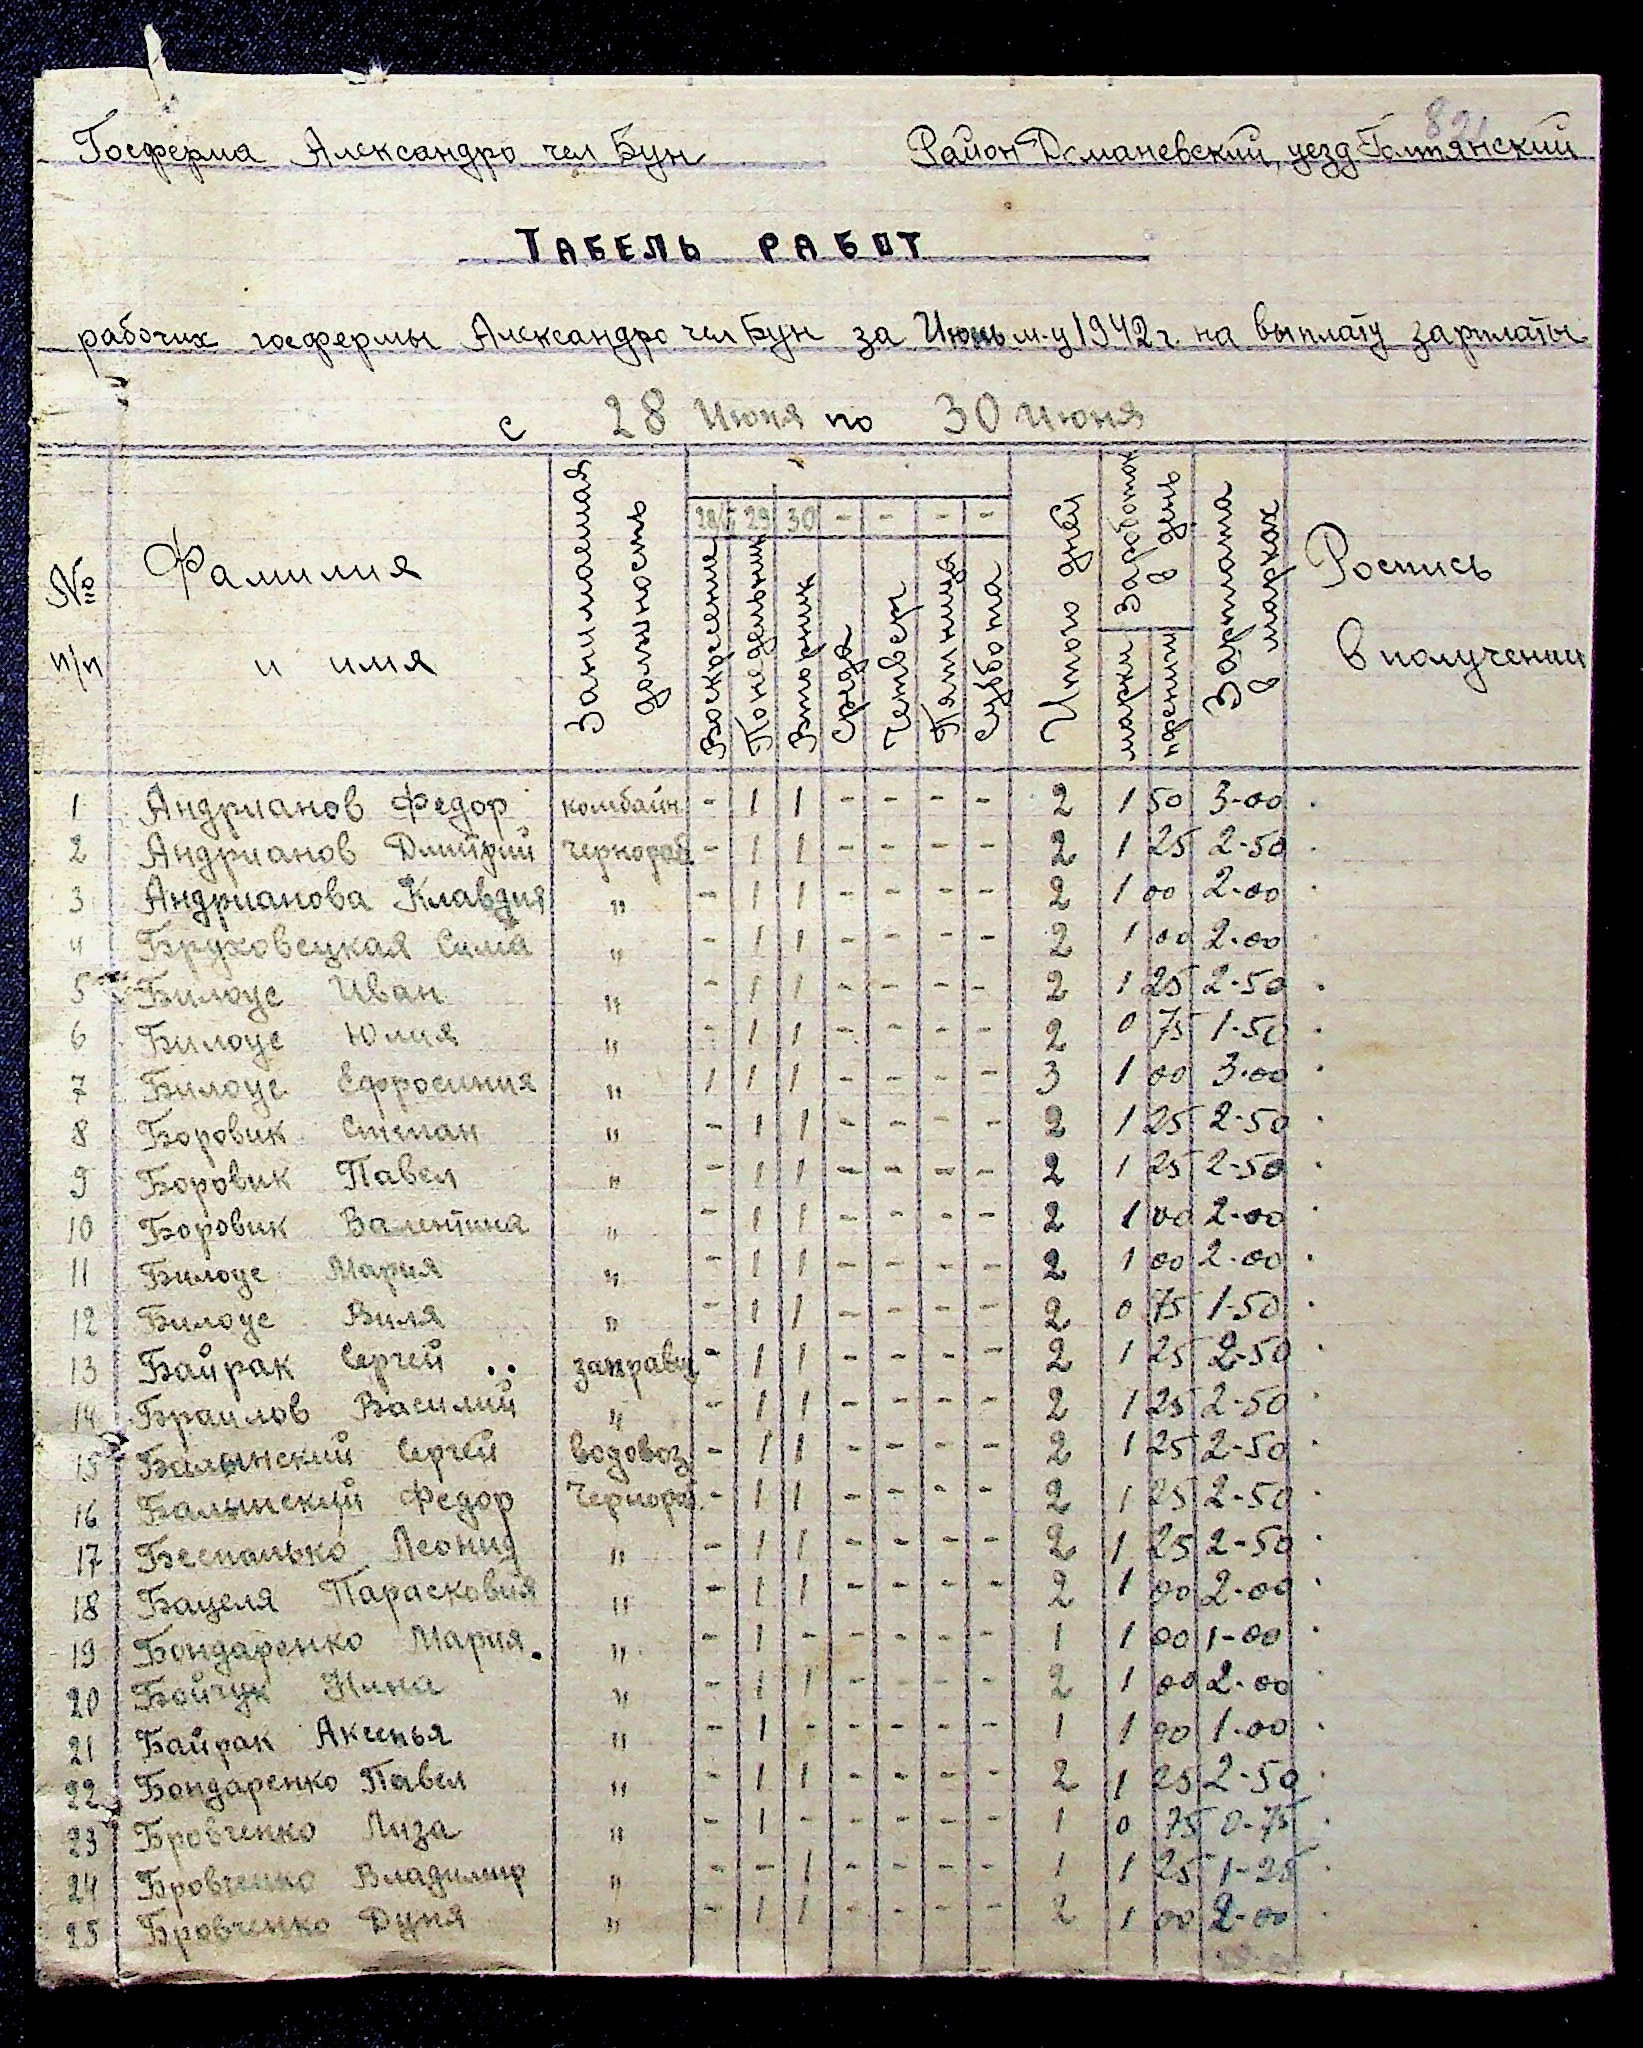 82
Госферма Александро чел Бун Район Доманевский, уезд Голтянский
ТАБЕЛЬ РАБОТ
рабочих госфермы Александро чел Бун за Июнь м-ц 1942 г. на выплату зарплаты
с 28 Июня по 30 июня
№ п/п Фамилия и имя Занимаемая должность Воскресение Понедельник Вторник Среда Четверг Пятница Суббота Итого дней Заработок в день марки пфенниги Зарплата в марках Роспись в получении
28/VI 29 30 - - - -
1 Андрианов Федор комбайн. - 1 1 - - - - 2 1 50 3-00
2 Андрианов Дмитрий чернораб - 1 1 - - - - 2 1 25 2-50
3 Андрианова Клавдия " - 1 1 - - - - 2 1 00 2-00
4 Бруховецкая Сима " - 1 1 - - - - 2 1 00 2-00
5 Билоус Иван " - 1 1 - - - - 2 1 25 2-50
6 Билоус Юлия " - 1 1 - - - - 2 0 75 1-50
7 Билоус Ефросиния " 1 1 1 - - - - 3 1 00 3-00
8 Боровик Степан " - 1 1 - - - - 2 1 25 2-50
9 Боровик Павел " - 1 1 - - - - 2 1 25 2-50
10 Боровик Валентина " - 1 1 - - - - 2 1 00 2-00
11 Билоус Мария " - 1 1 - - - - 2 1 00 2-00
12 Билоус Виля " - 1 1 - - - - 2 0 75 1-50
13 Байрак Сергей .. заправщ - 1 1 - - - - 2 1 25 2-50
14 Браилов Василий " - 1 1 - - - - 2 1 25 2-50
15 Балынский Сергей водовоз - 1 1 - - - - 2 1 25 2-50
16 Балынский Федор Чернораб. - 1 1 - - - - 2 1 25 2-50
17 Беспалько Леонид " - 1 1 - - - - 2 1 25 2-50
18 Бацеля Парасковия " - 1 1 - - - - 2 1 00 2-00
19 Бондаренко Мария. " - 1 - - - - - 1 1 00 1-00
20 Бойчук Нина " - 1 1 - - - - 2 1 00 2-00
21 Байрак Аксенья " - 1 - - - - - 1 1 00 1-00
22 Бондаренко Павел " - 1 1 - - - - 2 1 25 2-50
23 Бровченко Лиза " - 1 - - - - - 1 0 75 0-75
24 Бровченко Владимир " - - 1 - - - - 1 1 25 1-25
25 Бровченко Дуня " - 1 1 - - - - 2 1 00 2-00